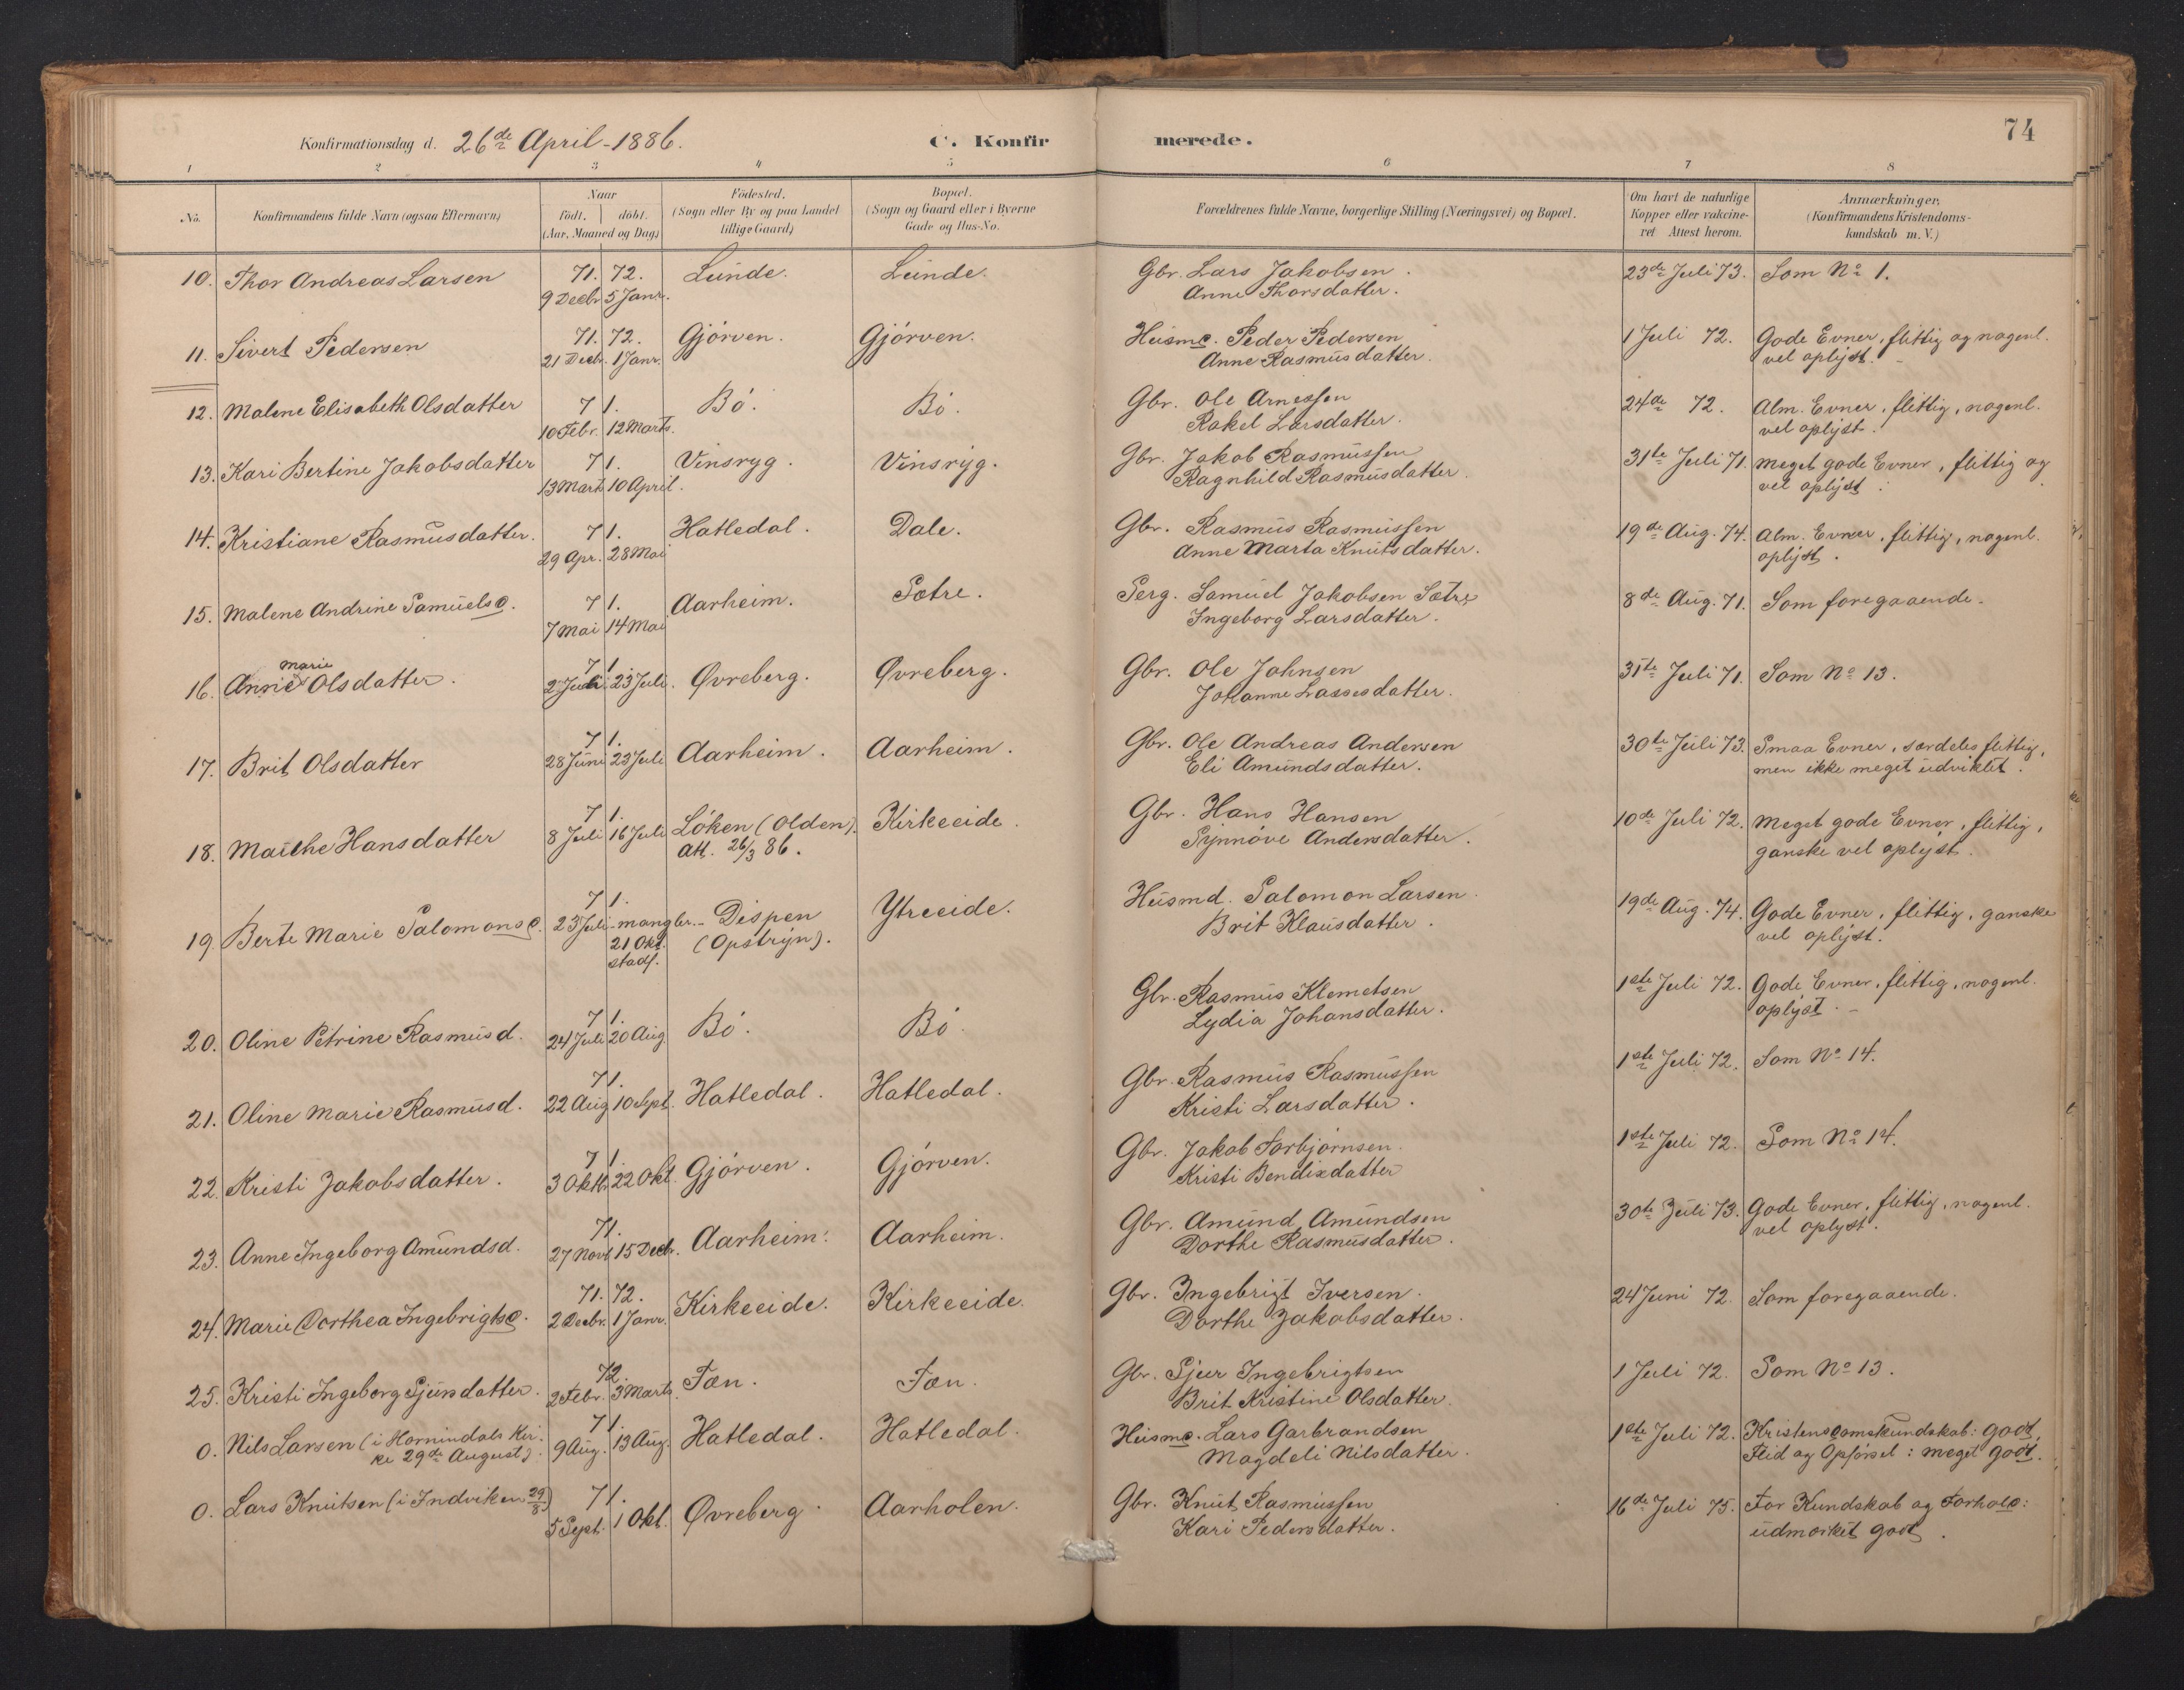 Konfirmationsdag d. 26de April-1886. C. Konfirmerede. 74
1 2 3 4 5 6 7 8
No. Konfirmandens fulde Navn (ogsaa Efternavn) Naar født. døbt. (Aar, Maaned og Dag) Fødested. (Sogn eller By og paa Landet tillige Gaard) Bopæl. (Sogn og Gaard eller i Byerne Gade og Hus-No. Forældrenes fulde Navne, borgerlige Stilling (Næringsvei) og Bopæl. Om havt de naturlige Kopper eller vakcineret Attest herom. Anmærkninger. (Konfirmandens Kristendomskundskab m. V.)
10. Thor Andreas Larsen 71. 72. Lunde. Lunde. Gbr. Lars Jakobsen. 23de Juli 73. Som No 1.
9 Decbr 5 Janr. Anne Thorsdatter.
11. Sivert Pedersen 71. 72. Gjörven. Gjörven. Husmd. Peder Pedersen 1 Juli 72. Gode Evner, flittig og nogenl.
21 Decbr. 1 Janr. Anne Rasmusdatter. vel oplyst.
12. Malene Elisabeth Olsdatter 71. Bö. Bö. Gbr. Ole Arnessen 24de 72. Alm. Evner, flittig, nogenl.
10 Febr. 12 Marts. Rakel Larsdatter. vel oplyst.
13. Kari Bertine Jakobsdatter 71. Vinsryg. Vinsryg. Gbr. Jakob Rasmussen 31te Juli 71. Meget gode Evner, flittig og
13 Marts 10 April. Ragnhild Rasmusdatter. vel oplyst.
14. Kristiane Rasmusdatter. 71. Hatledal. Dale. Gbr. Rasmus Rasmussen 19de Aug. 74. Alm. Evner, flittig, nogenl.
29 Apr. 28 Mai Anne Marta Knutsdatter. oplyst.
15. Malene Andrine Samuelsd. 71. Aarheim. Sætre. Serg. Samuel Jakobsen Sætre 8de Aug. 71. Som foregaaende.
7 Mai 14 Mai Ingeborg Larsdatter.
16. Anne Marie Olsdatter. 71. Øvreberg. Øvreberg. Gbr. Ole Johnsen 31te Juli 71. Som No 13.
2 Juli 23 Juli. Johanne Lassesdatter.
17. Brit Olsdatter 71. Aarheim. Aarheim. Gbr. Ole Andreas Andersen 30te Juli 73. Smaa Evner, særdeles flittig,
28 Juni 23 Juli Eli Amundsdatter. men ikke meget udviklet.
18. Marthe Hansdatter 71. Löken (Olden). Kirkeeide. Gbr. Hans Hansen 10de Juli 72. Meget gode Evner, flittig,
8 Juli 16 Juli att. 26/3 86. Synnöve Andersdatter. ganske vel oplyst.
19. Berte Marie Salomonsd. 71. Dispen Ytreeide. Husmd. Salomon Larsen. 19de Aug. 74. Gode Evner, flittig, ganske
23 Juli - mangler. - (Opstryn). Brit Klausdatter. vel oplyst.
21 Okt.
stadf.
20. Oline Petrine Rasmusd. 71. Bö. Bö. Gbr. Rasmus Klemetsen 1ste Juli 72. Gode Evner, flittig, nogenl.
24 Juli 20 Aug. Lydia Johansdatter. oplyst.
21. Oline Marie Rasmusd. 71. Hatledal. Hatledal. Gbr. Rasmus Rasmussen 1ste Juli 72. Som No 14.
22 Aug 10 Sept. Kristi Larsdatter.
22. Kristi Jakobsdatter. 71. Gjörven. Gjörven. Gbr. Jakob Torbjörnsen. 1ste Juli 72. Som No 14.
3 Oktb. 22 Okt. Kristi Bendixdatter
23. Anne Ingeborg Amundsd. 71. Aarheim. Aarheim. Gbr. Amund Amundsen 30te Juli 73. Gode Evner, flittig, nogenl.
27 Novb. 15 Decbr. Dorthe Rasmusdatter. vel oplyst.
24. Marie Dorthea Ingebrigtsd. 71. 72. Kirkeeide. Kirkeeide. Gbr. Ingebrigt Iversen. 24 Juni 72. Som foregaaende.
2 Decbr. 1 Janr. Dorthe Jakobsdatter.
25. Kristi Ingeborg Sjursdatter. 72. Tæn. Tæn. Gbr. Sjur Ingebrigtsen 1 Juli 72. Som No 13.
2 Febr. 3 Marts. Brit Kristine Olsdatter.
0. Nils Larsen (i Hornindals Kir- 71. Hatledal. Hatledal. Husmd. Lars Garbrandsen 1ste Juli 72. Kristendomskundskab: godt,
ke 29de August). 9 Aug. 13 Aug. Magdeli Nilsdatter. Flid og Opförsel: meget godt.
0. Lars Knutsen (i Indviken 29/8) 71. Øvreberg. Aarholen. Gbr. Knut Rasmussen 16de Juli 75. For Kundskab og Forhold:
5 Sept. 1 Okt. Kari Pedersdatter. udmærket godt.